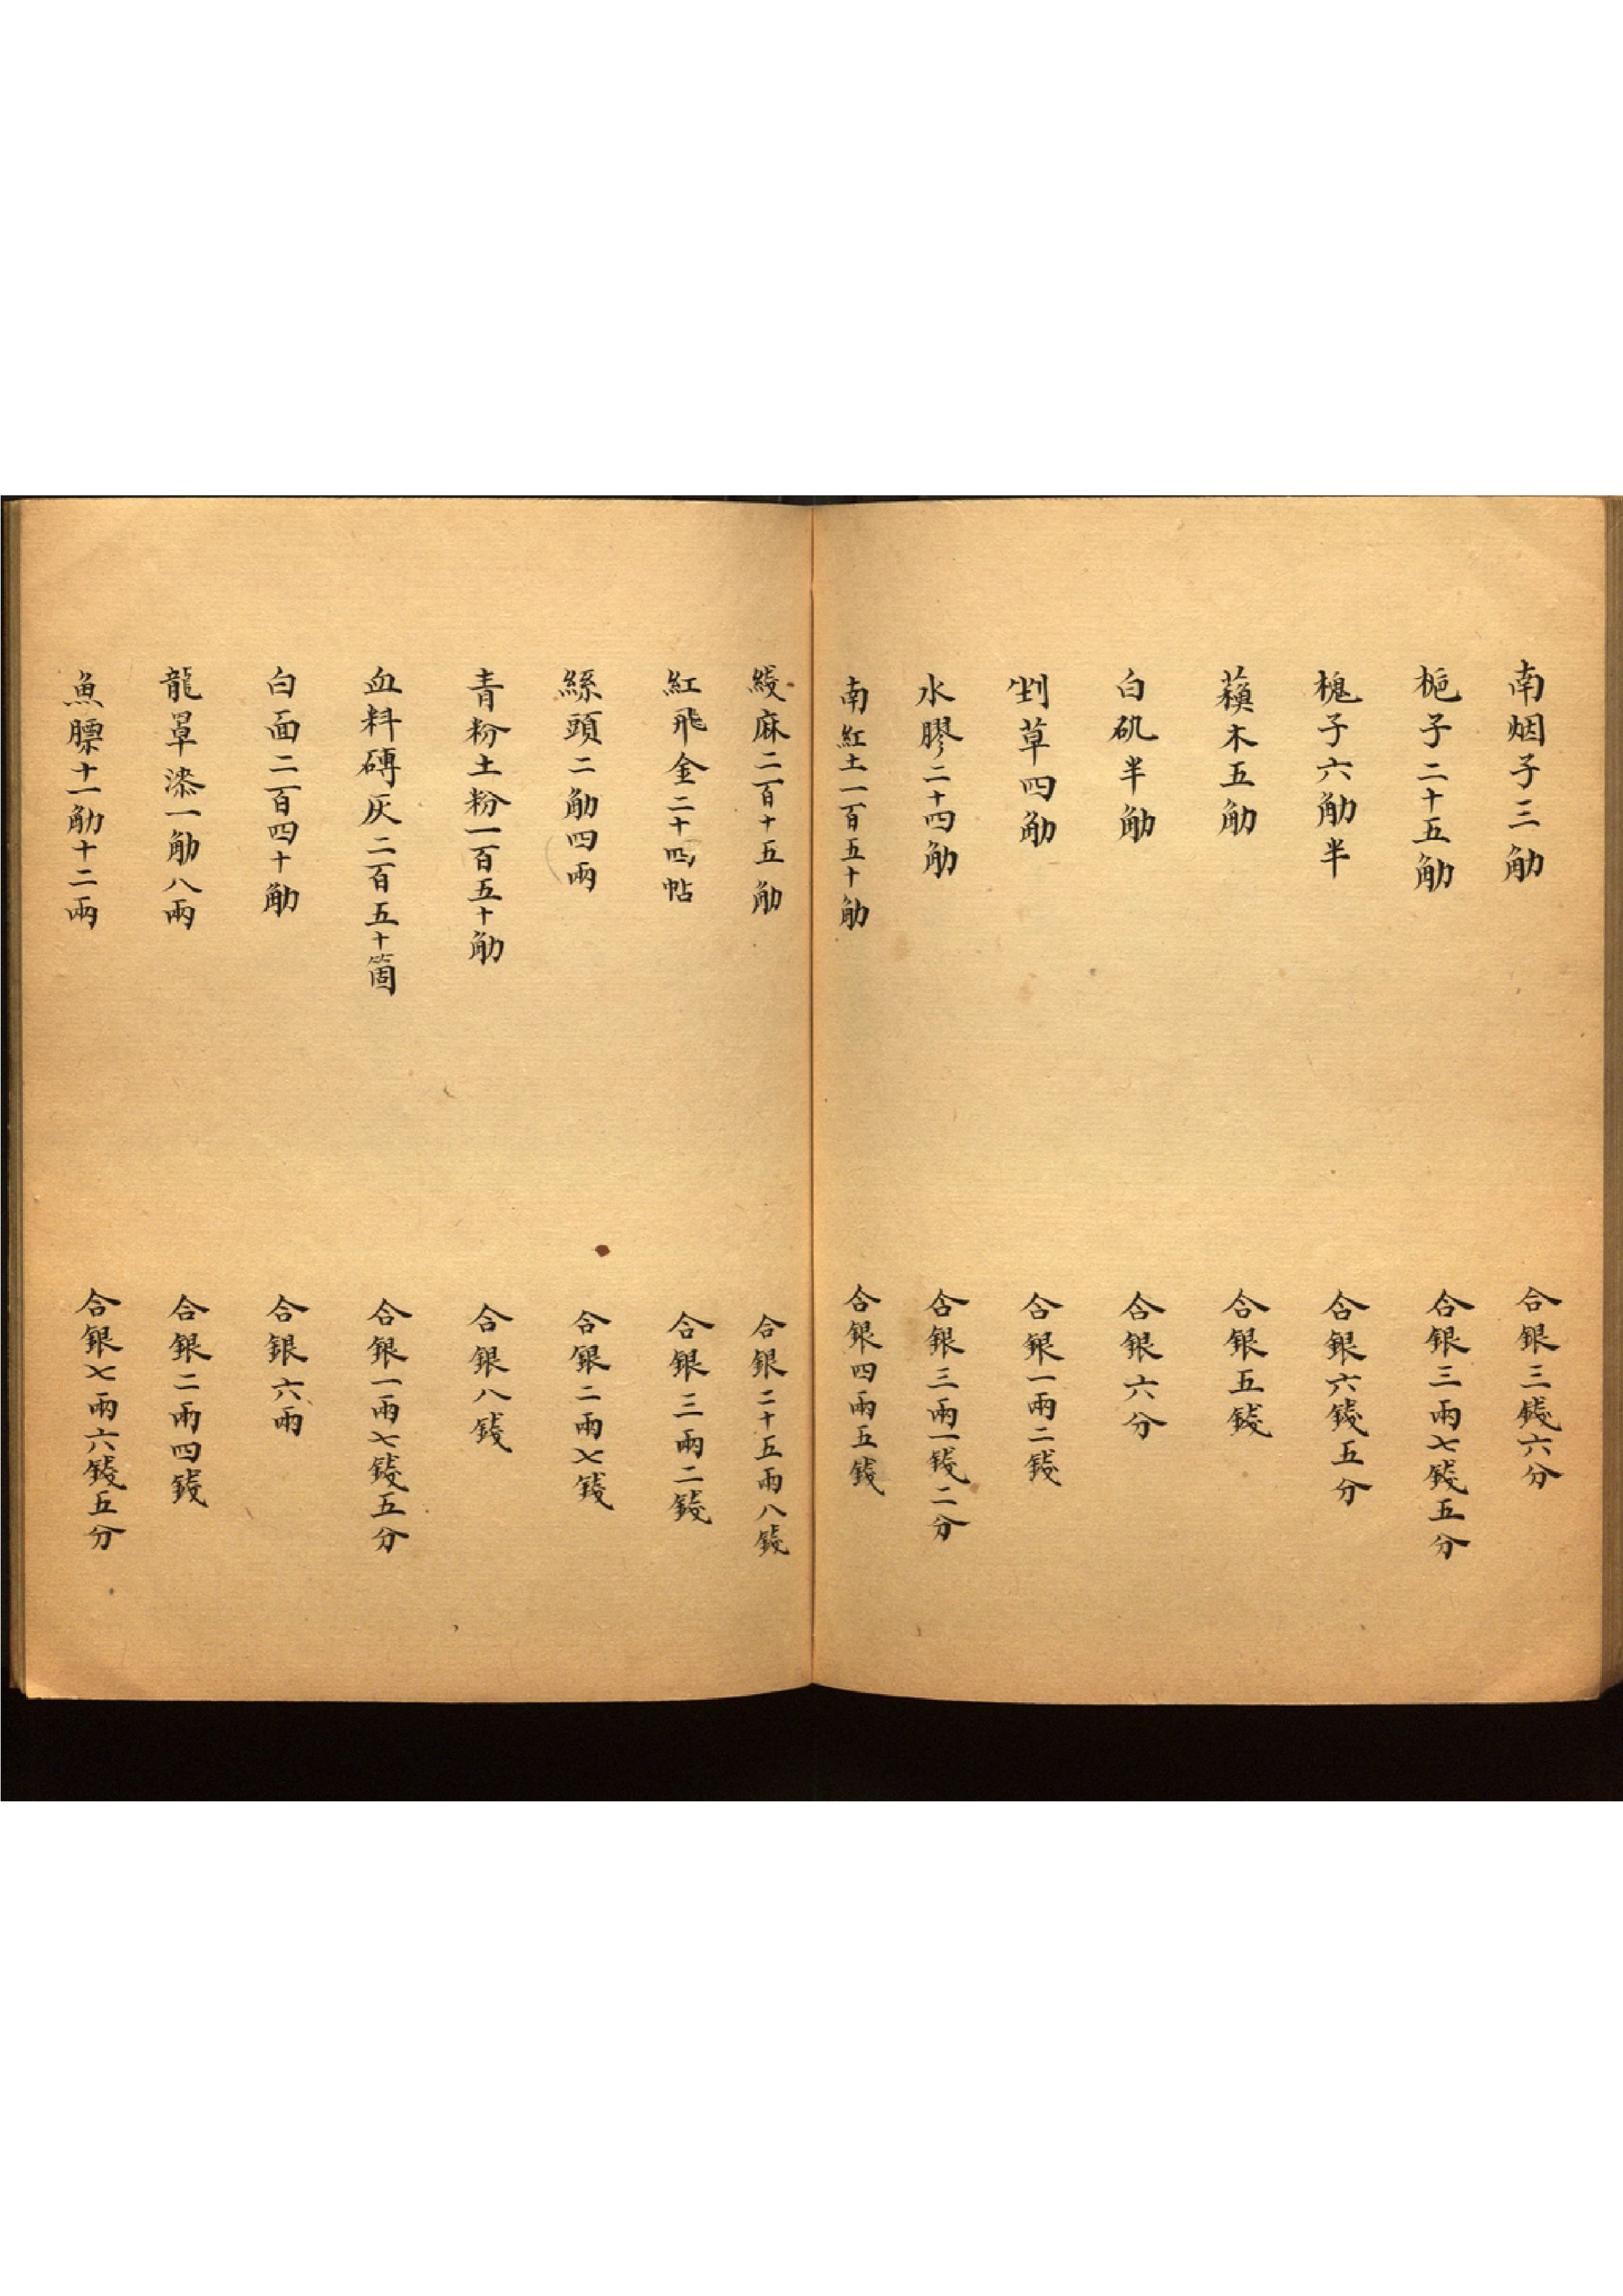 南烟子三觔 合銀三錢六分
梔子二十五觔 合銀三兩七錢五分
槐子六觔半 合銀六錢五分
蘓木五觔 合銀五錢
白矾半觔 合銀六分
剉草四觔 合銀一兩二錢
水膠二十四觔 合銀三兩一錢二分
南紅土一百五十觔 合銀四兩五錢
綫麻二百十五觔 合銀二十五兩八錢
紅飛金二十四帖 合銀三兩二錢
絲頭二觔四兩 合銀二兩七錢
青粉土粉一百五十觔 合銀八錢
血料磚灰二百五十箇 合銀一兩七錢五分
白面二百四十觔 合銀六兩
龍罩漆一觔八兩 合銀二兩四錢
魚膘十一觔十二兩 合銀七兩六錢五分